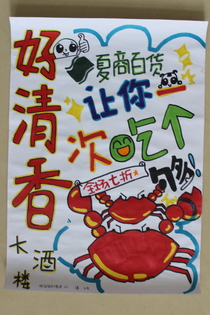 好清香
大酒楼
夏商百货
让你一
次吃个
够!
全场七折